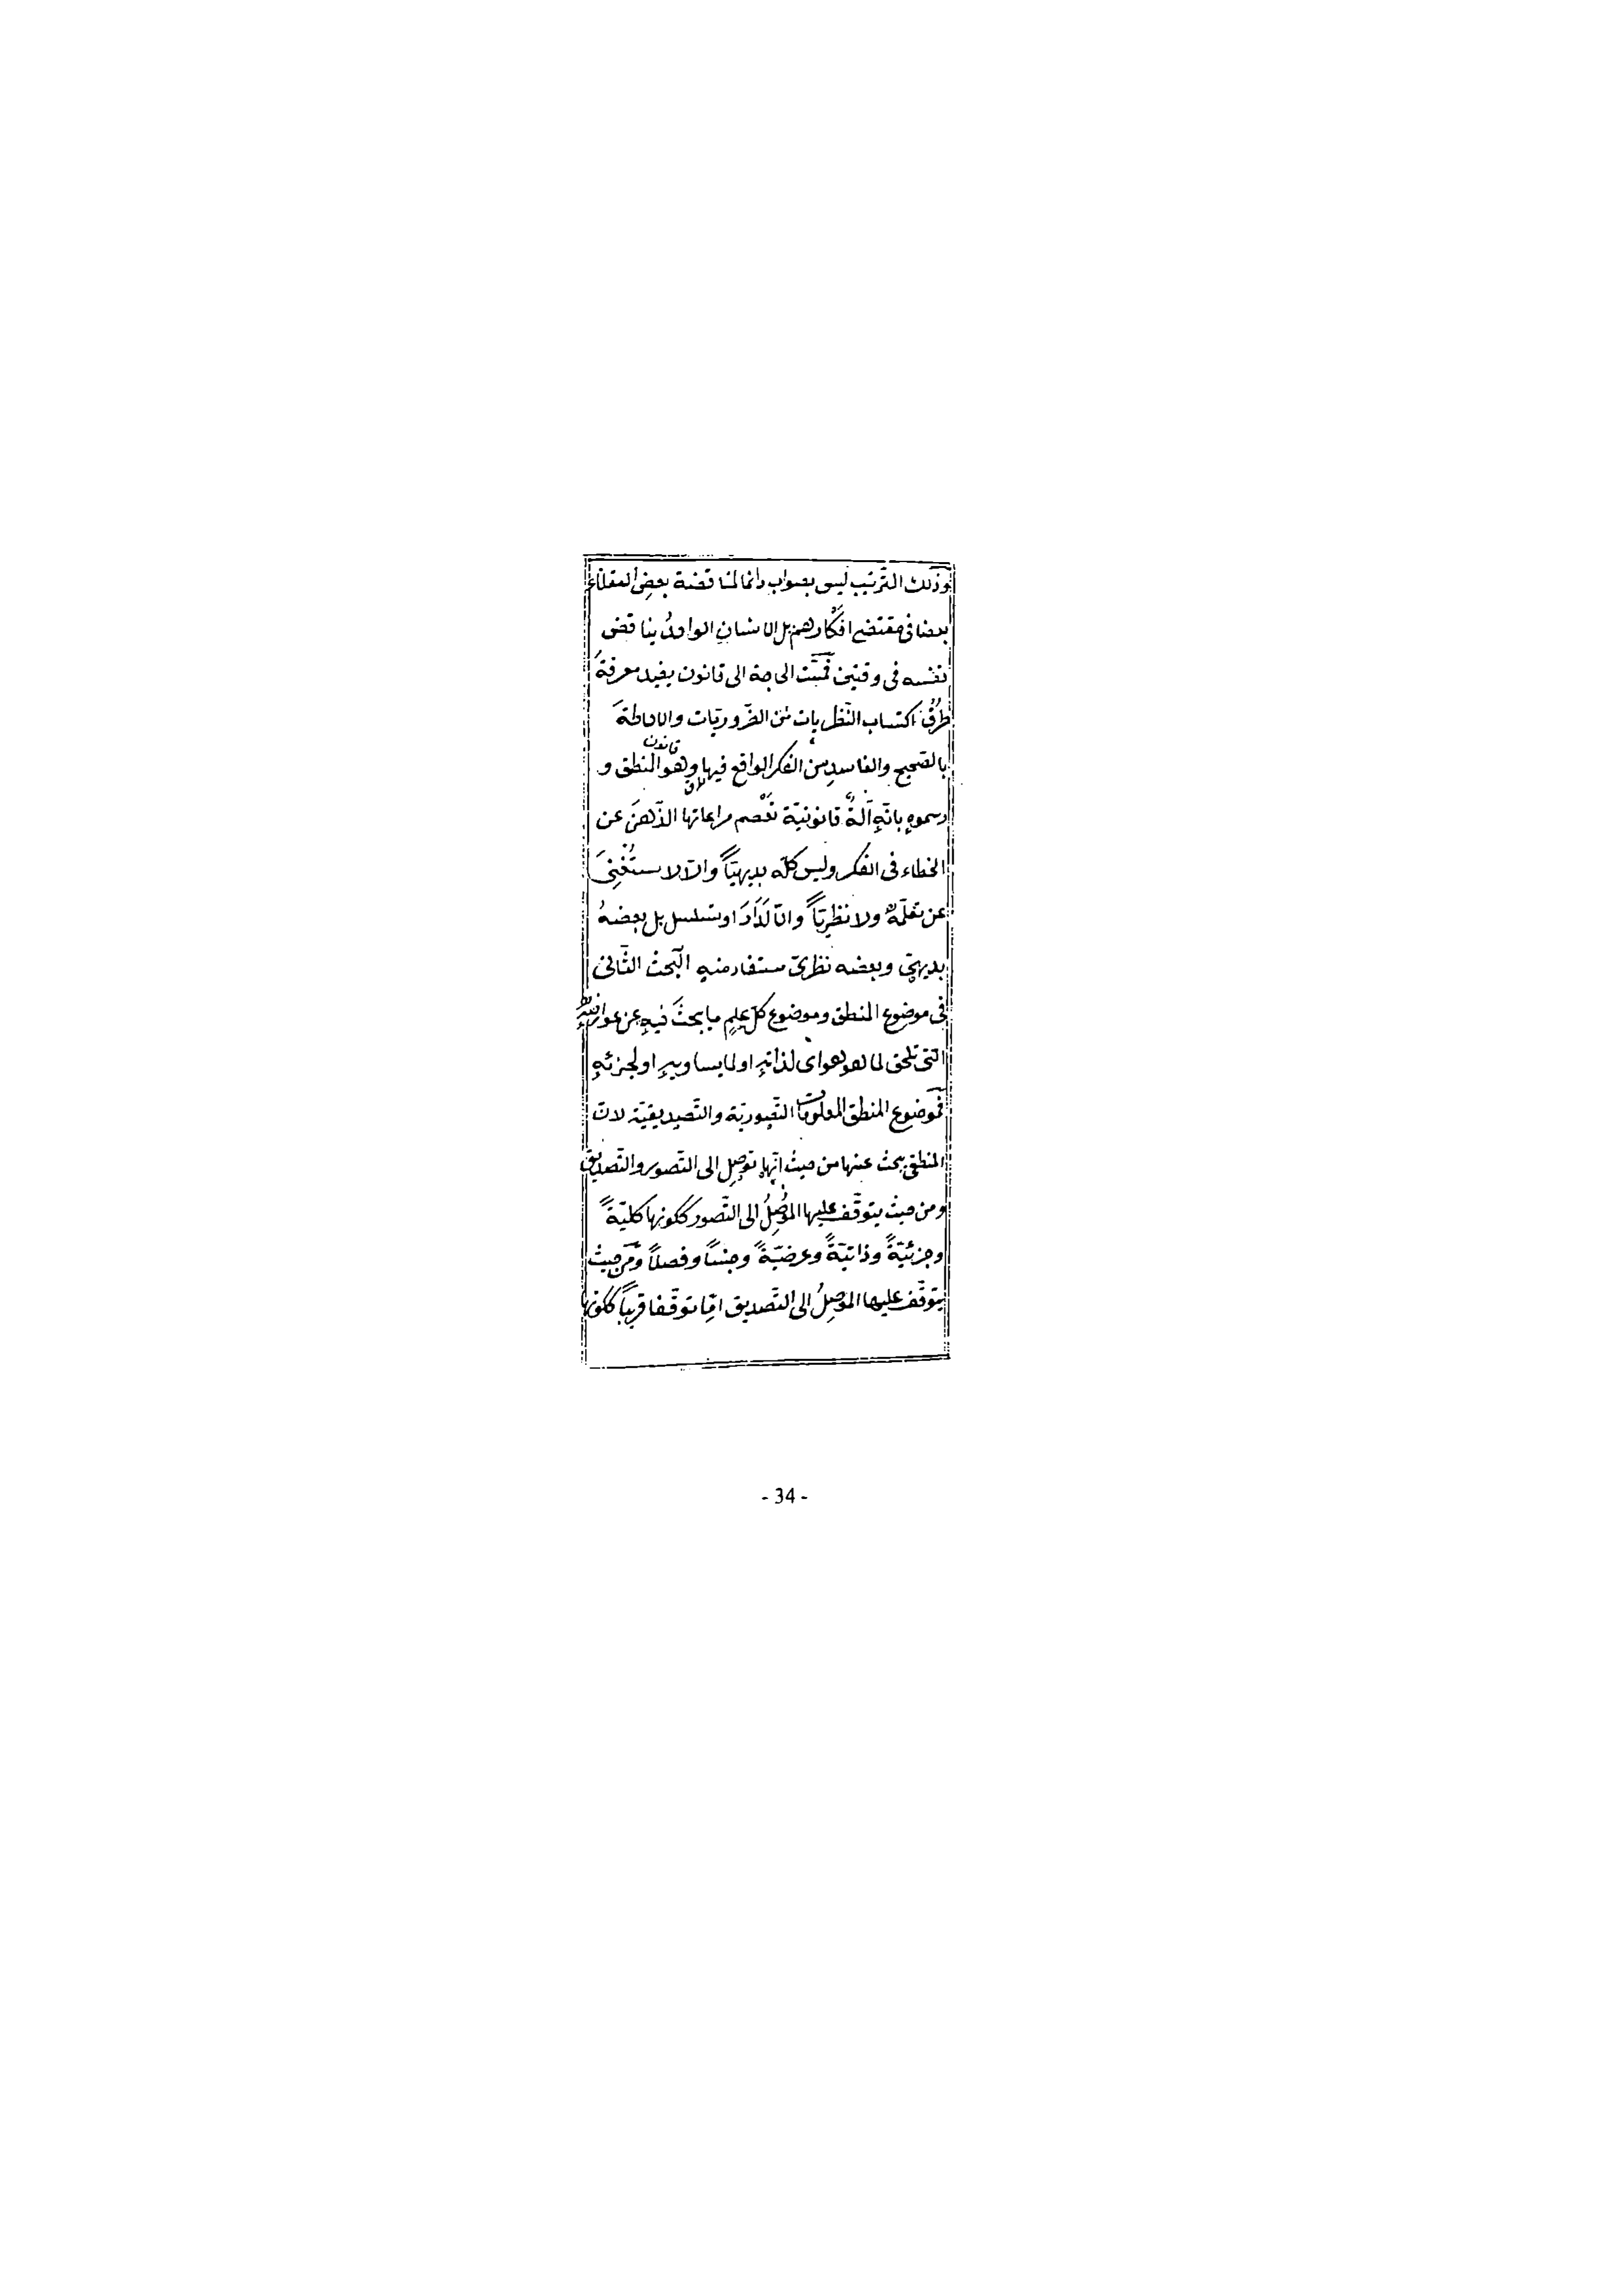 وذلك الترتيب ليس بصواب دائما لمناقضة بعض العقلاء
بعضا فى مقتضى افكارهم بل الانسان الواحد يناقض
نفسه فى وقتين فمست الحاجة الى قانون يفيد معرفة
طرق اكتساب النظريات من الضروريات والاحاطة
بالصحيح والفاسد من الفكر الواقع فيها وهو المنطق و
قانون
رسموه بانه آلة قانونية تعصم مراعاتها الذهن عن
الخطاء فى الفكر وليس كله بديهيّاً والّا لاستُغْنِىَ
عن تعلّمه ولا نظريّاً والّا لَدَارَ او تسلسل بل بعضهُ
بديهىّ وبعضه نظرىّ مستفاد منه البحث الثّانى
فى موضوع المنطق وموضوع كلّ علمٍ ما يبحث فيه عن عوارضه
الّتى تلحق لما هو هو اى لذاتهِ او لما يساويهِ او لجزئهِ
فموضوع المنطق المعلومات التّصوريّة والتّصديقيّة لانّ
المنطقى يبحث عنها من حيث انّها توصل الى التّصور والتّصديق
ومن حيث يتوقّف عليها الموصِلُ الى التّصور ككونها كليّةً
وجزئيّةً وذاتيّةً وعرضيّةً وجنساً وفصلاً ومن حيث
يتوقّف عليها الموصِلُ الى التّصديق امّا توقّفا قريباً ككونها
- 34 -